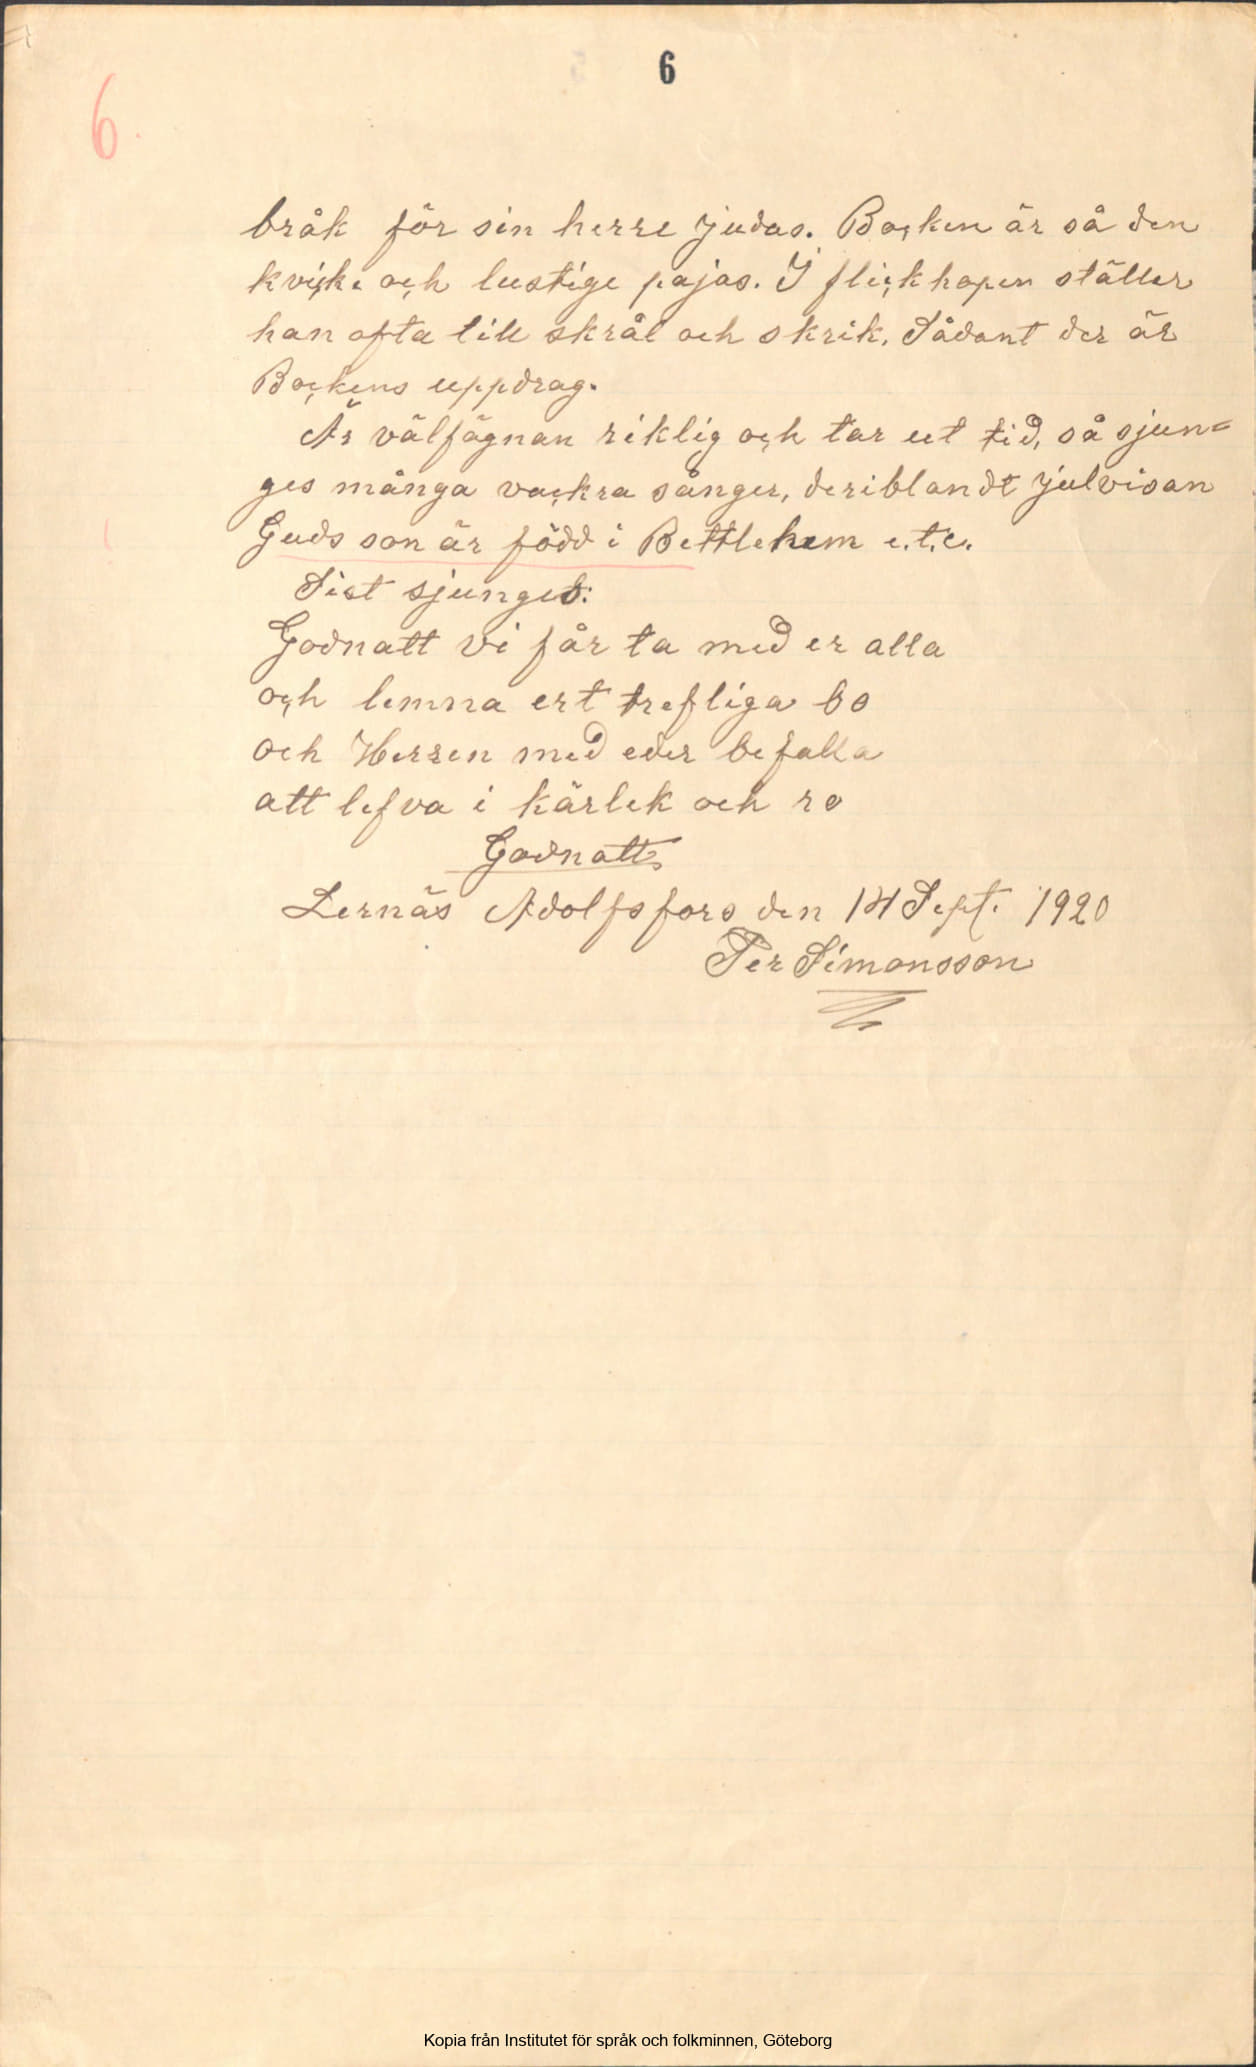 6
6
bråk för sin herre judas. Bocken är så den
kvicke och lustige pajas. I flickhopen ställer
han ofta till skrål och skrik. Sådant der är
Bockens uppdrag.
Är välfägnan riklig och tar ut tid, så sjun=
ges många vackra sånger, deriblandt julvisan
Guds son är född i Bettlehem e.t.c.
Sist sjunges:
Godnatt vi får ta med er alla
och lemna ert trefliga bo
och Herren med eder befalla
att lefva i kärlek och ro
Godnatt
Lernäs Adolfsfors den 14 Sept. 1920
Per Simonsson
Kopia från Institutet för språk och folkminnen, Göteborg